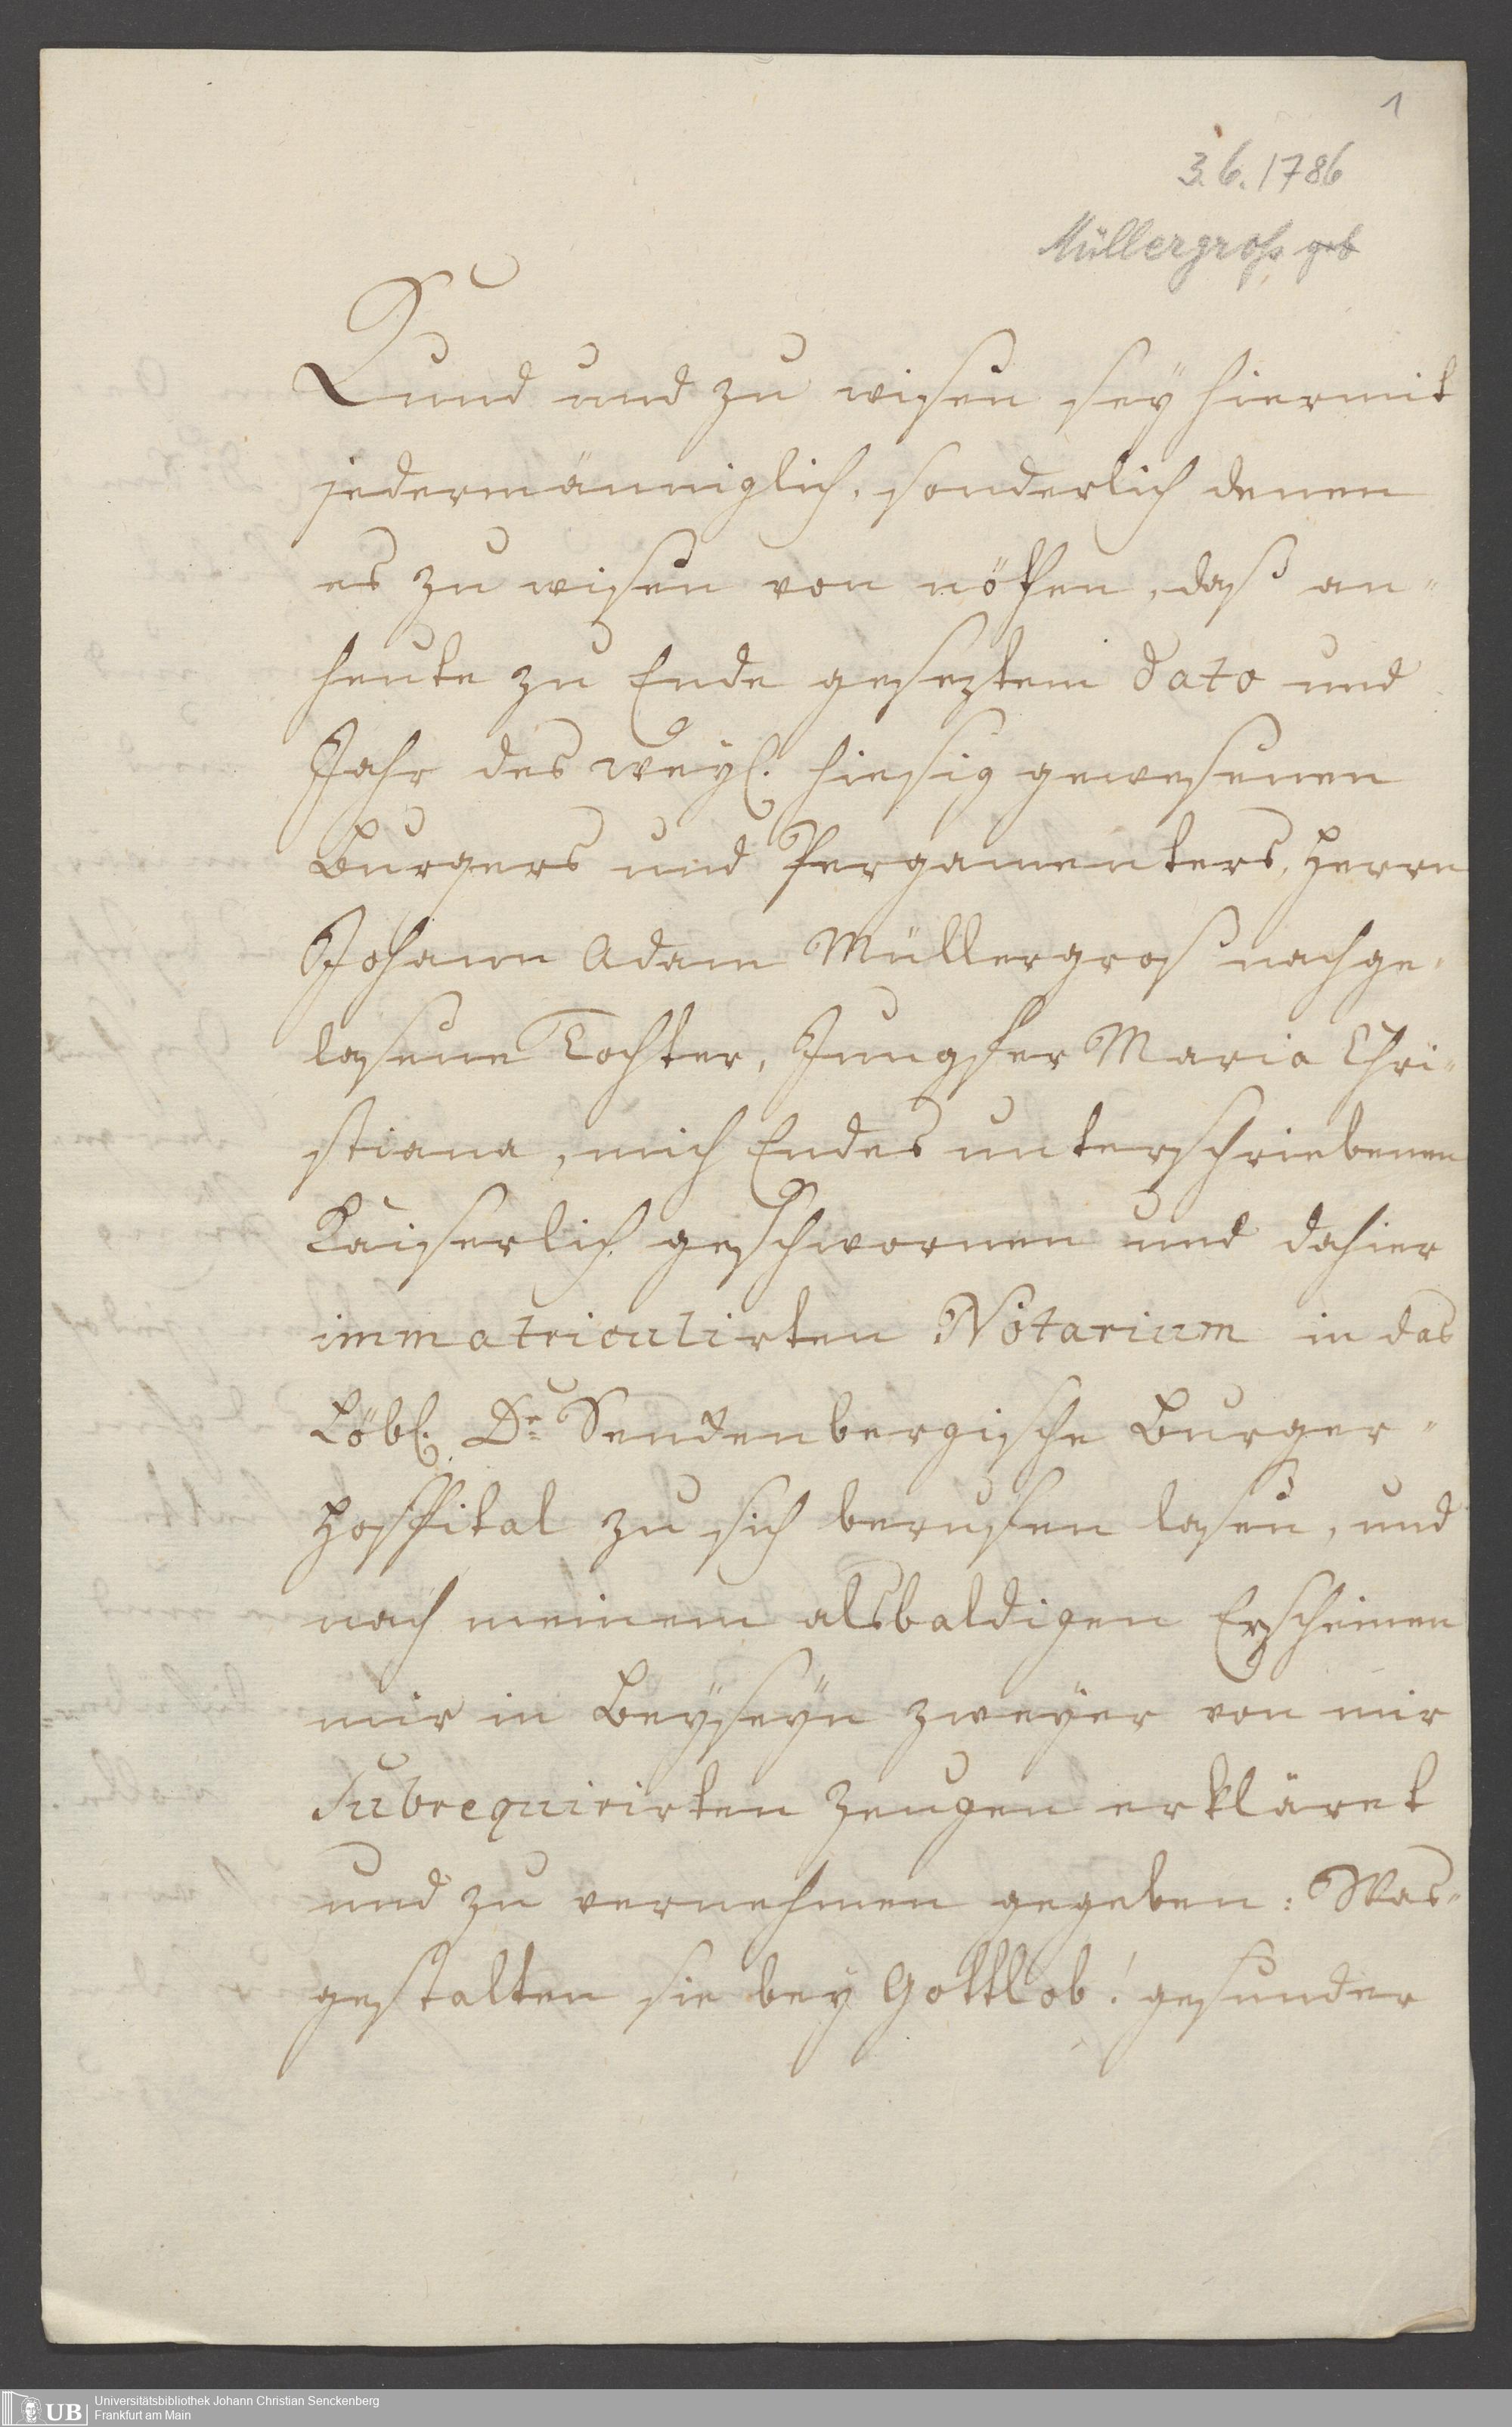 1
3. 6. 1786
Müllergroß geb
Kund und zu wißen seÿ hiermit
jedermänniglich, sonderlich denen
es zu wißen von nöthen, daß an-
heute zu Ende geseztem dato und
Jahr des weÿl. hiesig gewesenen
Burgers und Pergamenters, Herrn
Johann Adam Müllergroß nachge-
laßene Tochter, Jungfer Maria Chri-
stiana, mich Endes unterschriebenen
Kaiserlich geschwornen und dahier
immatriculirten Notarium in das
Löbl. Dr. Senckenbergische Burger-
Hospital zu sich berufen laßen, und
nach meinem alsbaldigen Erscheinen
mir in Beÿseÿn zweÿer von mir
subrequirirten Zeugen erkläret
und zu vernehmen gegeben: Was-
gestalten sie beÿ Gottlob! gesunder
UB
Universitätsbibliothek Johann Christian Senckenberg
Frankfurt am Main